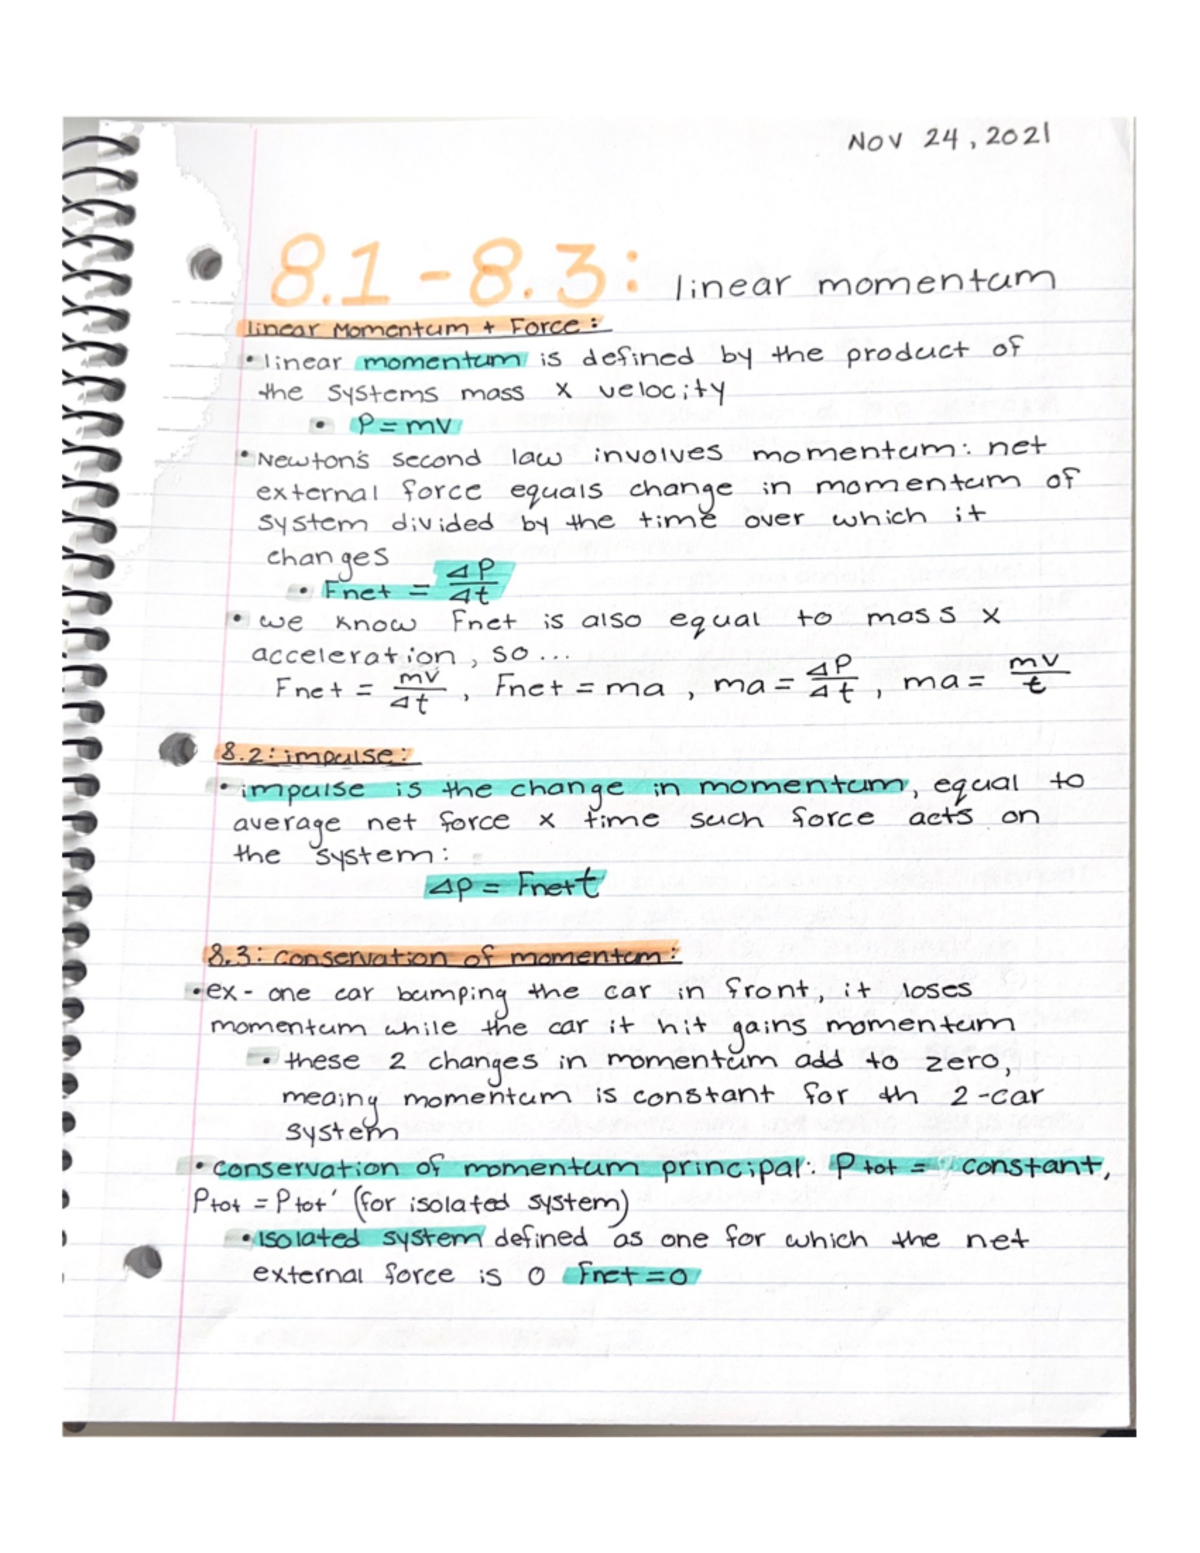 NOV 24, 2021
8.1-8.3: linear momentum
linear Momentum + Force:
• linear momentum is defined by the product of
the systems mass x velocity
• P = mv
• Newton's second law involves momentum: net
external force equals change in momentum of
system divided by the time over which it
changes
• Fnet = ΔP/Δt
• we know Fnet is also equal to mass x
acceleration, so...
Fnet = mv/Δt, Fnet = ma, ma = ΔP/Δt, ma = mv/t
8.2: impulse:
• impulse is the change in momentum, equal to
average net force x time such force acts on
the system:
Δp = Fnet t
8.3: conservation of momentum:
• ex - one car bumping the car in front, it loses
momentum while the car it hit gains momentum
• these 2 changes in momentum add to zero,
meaing momentum is constant for th 2-car
system
• conservation of momentum principal: Ptot = constant,
Ptot = Ptot' (for isolated system)
• isolated system defined as one for which the net
external force is 0 Fnet = 0